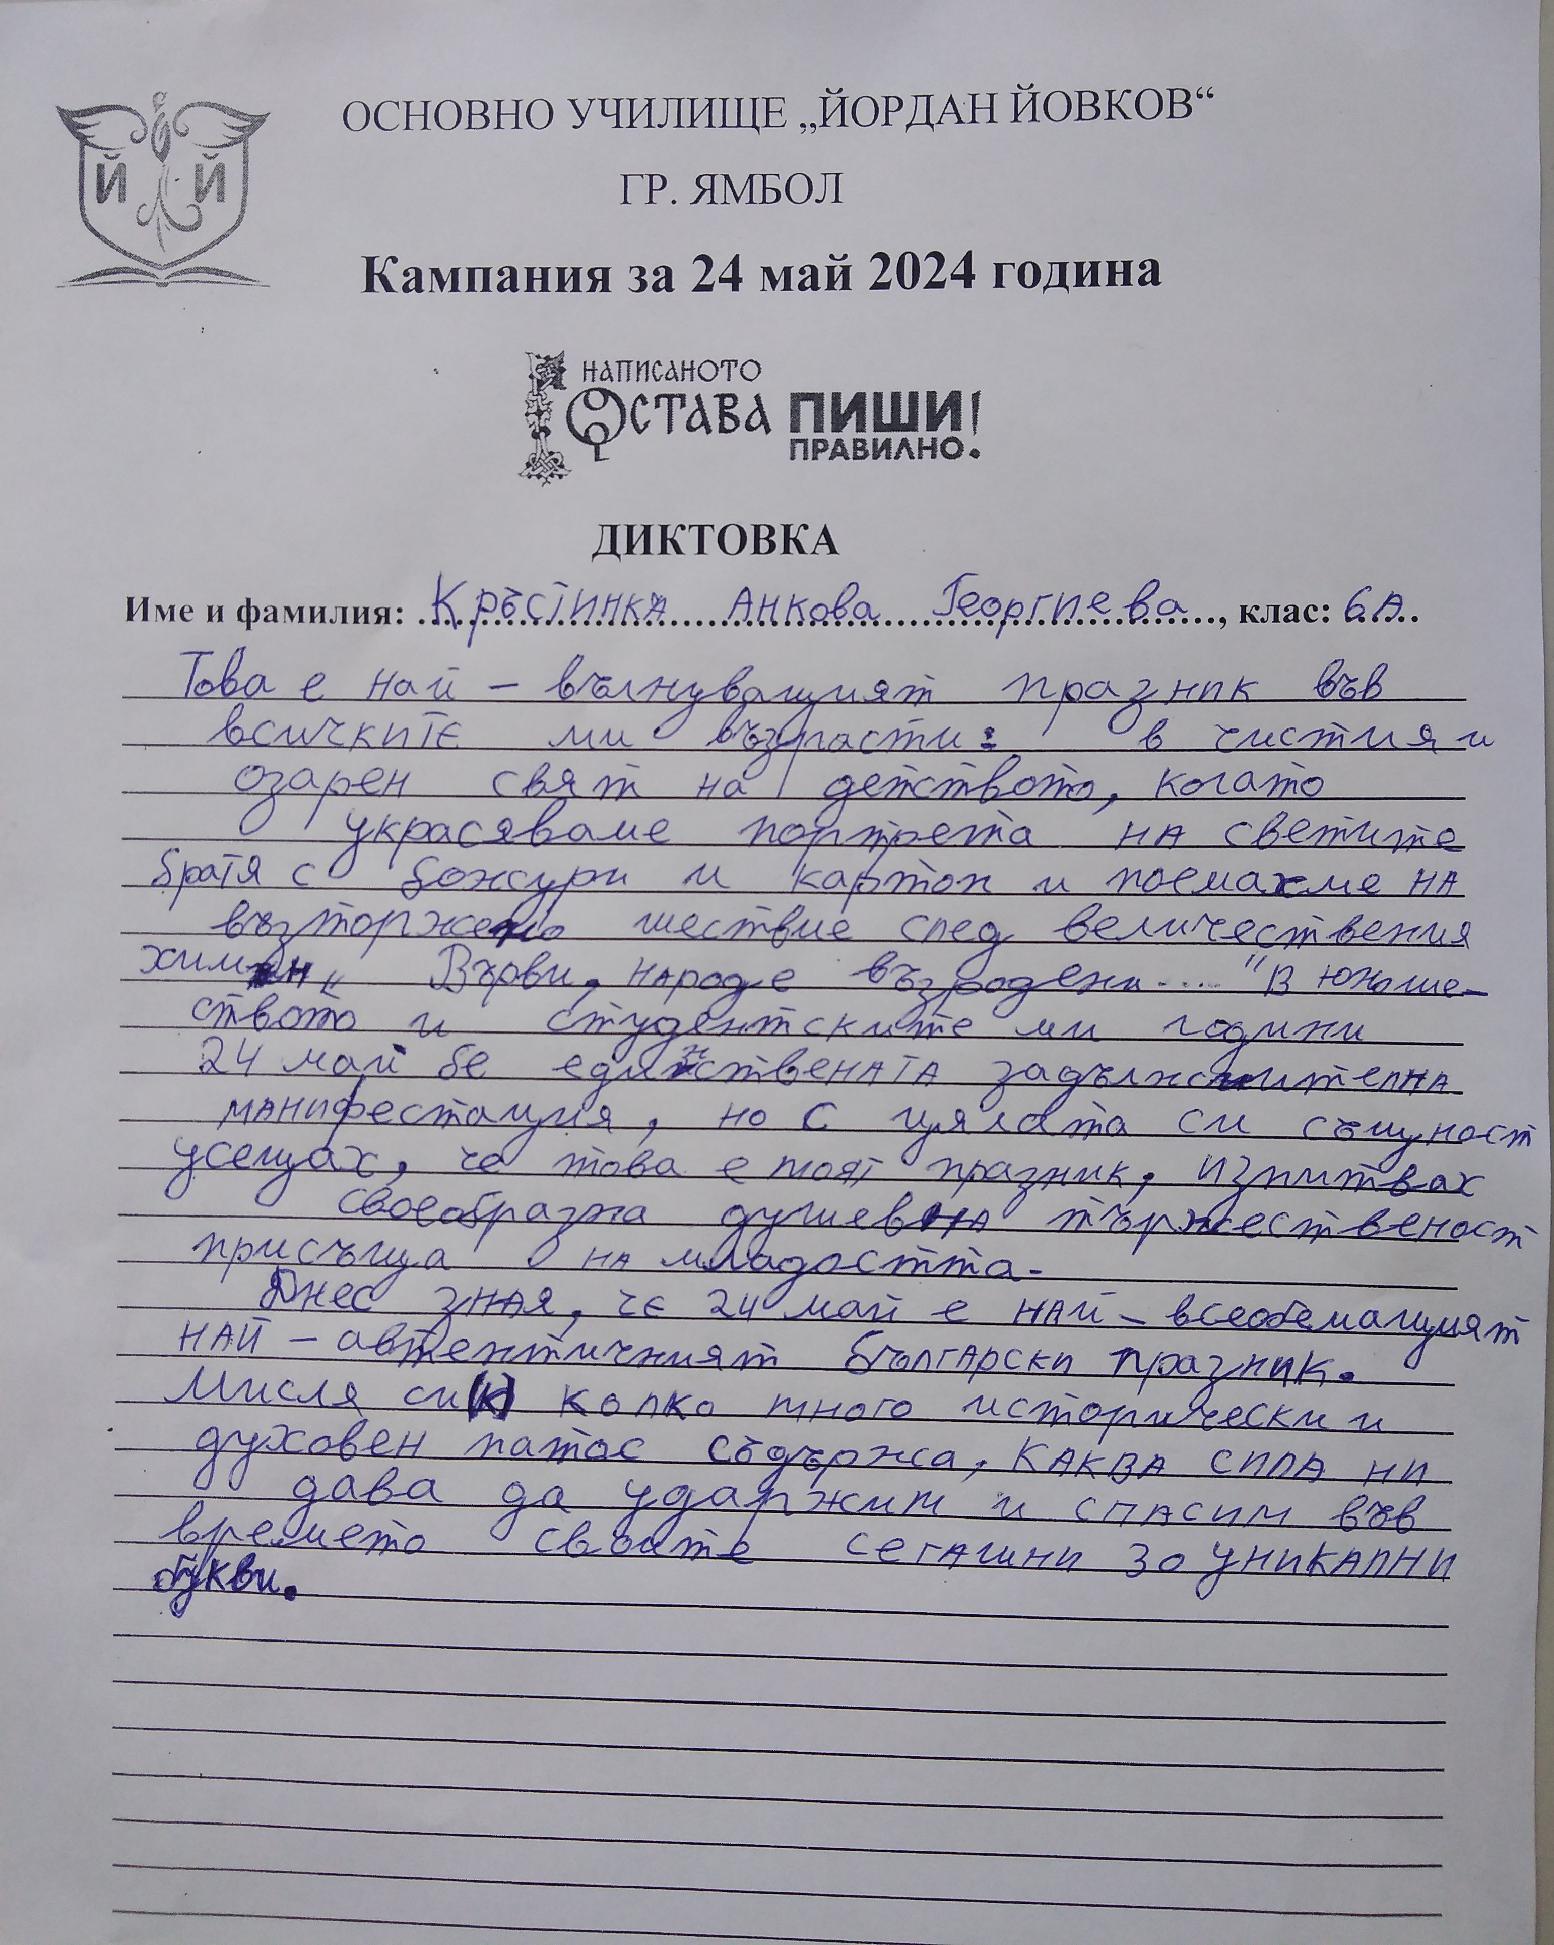 Й Й
ОСНОВНО УЧИЛИЩЕ „ЙОРДАН ЙОВКОВ“
ГР. ЯМБОЛ
Кампания за 24 май 2024 година
НАПИСАНОТО
ОСТАВА ПИШИ
ПРАВИЛНО!
ДИКТОВКА
Име и фамилия: Кръстинка Анкова Георгиева, клас: 6А
Това е най – вълнуващият празник във
всичките ми възрасти: в чистия и
озарен свят на детството, когато
украсяваме портрета на светите
братя с божури и картон и поемахме на
възторжено шествие след величествения
химн „ Върви, народе възродени .... " В юноше–
ството и студентските ми години
24 май бе единствената задължителна
манифестация, но с цялата си същност
усещах, че това е моят празник, изпитвах
своеобразна душевна тържественост
присъща на младостта.
Днес зная, че 24 май е най – всеобемащият
най – автентичният български празник.
Мисля си(к) колко много исторически и
духовен патос съдържа, каква сила ни
дава да ударжим и спасим във
времето своите сегашни 30 уникални
букви.